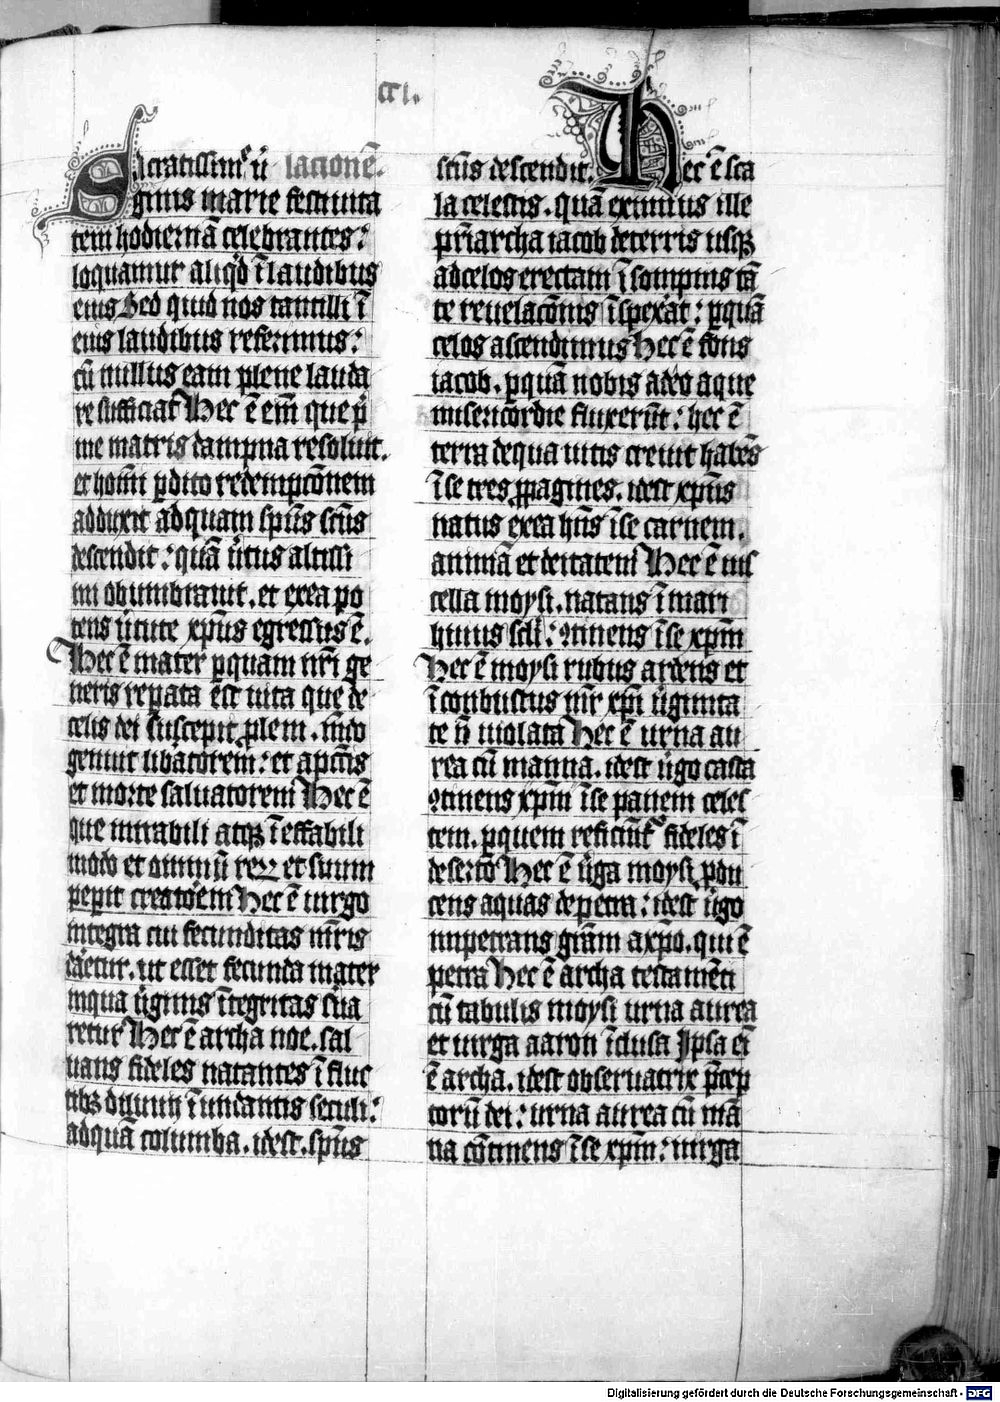 cci.
Sacratissime v̄ lacionē.
ginis marie festiuita
tem hodiernā celebrantes:
loquamur aliq'd ī laudibus
eius Sed quid nos tantilli ī
eius laudibus referimus:
cū nullus eam plene lauda
re sufficiat Hec ē em̄ que p̄
me matris dampna resoluit.
et homi perdito redempcōnem
adduxit ad quam sp̄us sc̄us
descendit: quā v̄tus altissi
mi obumbrauit. et ex ea po
tens v̄tute xp̄us egressus ē.
Hec ē mater per quam nr̄i ge
neris reparata est vita que de
celis dei suscepit plem. mūdo
genuit libatorem: et apcīis
et morte saluatorem Hec ē
que mirabili atqꝫ īeffabili
modo et omniū reꝝ et suum
peperit creatorem Hec ē uirgo
integra cui fecunditas mr̄is
daretur. ut esset fecunda mater
in qua v̄ginis ītegritas s'ua
retur Hec ē archa noe. sal
uans fideles natantes ī fluc
tibꝫ diluuij īundantis seculi:
ad quā columba. idest. sp̄us
sc̄us descendit. Hec ē sca
la celestis. quā eximius ille
pr̄iarcha iacob de terris usqꝫ
ad celos erectam ī sompnis tā
te reuelacōnis īspexerat: per quā
celos ascendimus Hec ē fons
iacob. per quā nobis a deo aque
misericordie fluxerūt: hec ē
terra de qua uitis creuit habēs
ī se tres propagines. idest xp̄us
natus ex ea hn̄s ī se carnem.
animā et deitatem Hec ē fis
cella moysi. natans ī mari
huius scli: ꝯtinens ī se xp̄m
Hec ē moysi rubus ardens et
īconbustus mr̄ xp̄i v̄ginita
te n̄ uiolata Hec ē urna au
rea cū manna. idest v̄go casta
ꝯtinens xp̄m ī se panem celes
tem. per quem reficiunt' fideles ī
deserto Hec ē v̄ga moysi produ
cens aquas de petra: idest v̄go
impetrans grām a xp̄o. qui ē
petra Hec ē archa testamēti
cū tabulis moysi urna aurea
et uirga aaron īclusa Ipsa em̄
ē archa. idest obseruatrix p̄cep
torū dei: urna aurea cū mā
na cōtinens ī se xp̄m: uirga
Digitalisierung gefördert durch die Deutsche Forschungsgemeinschaft - DFG